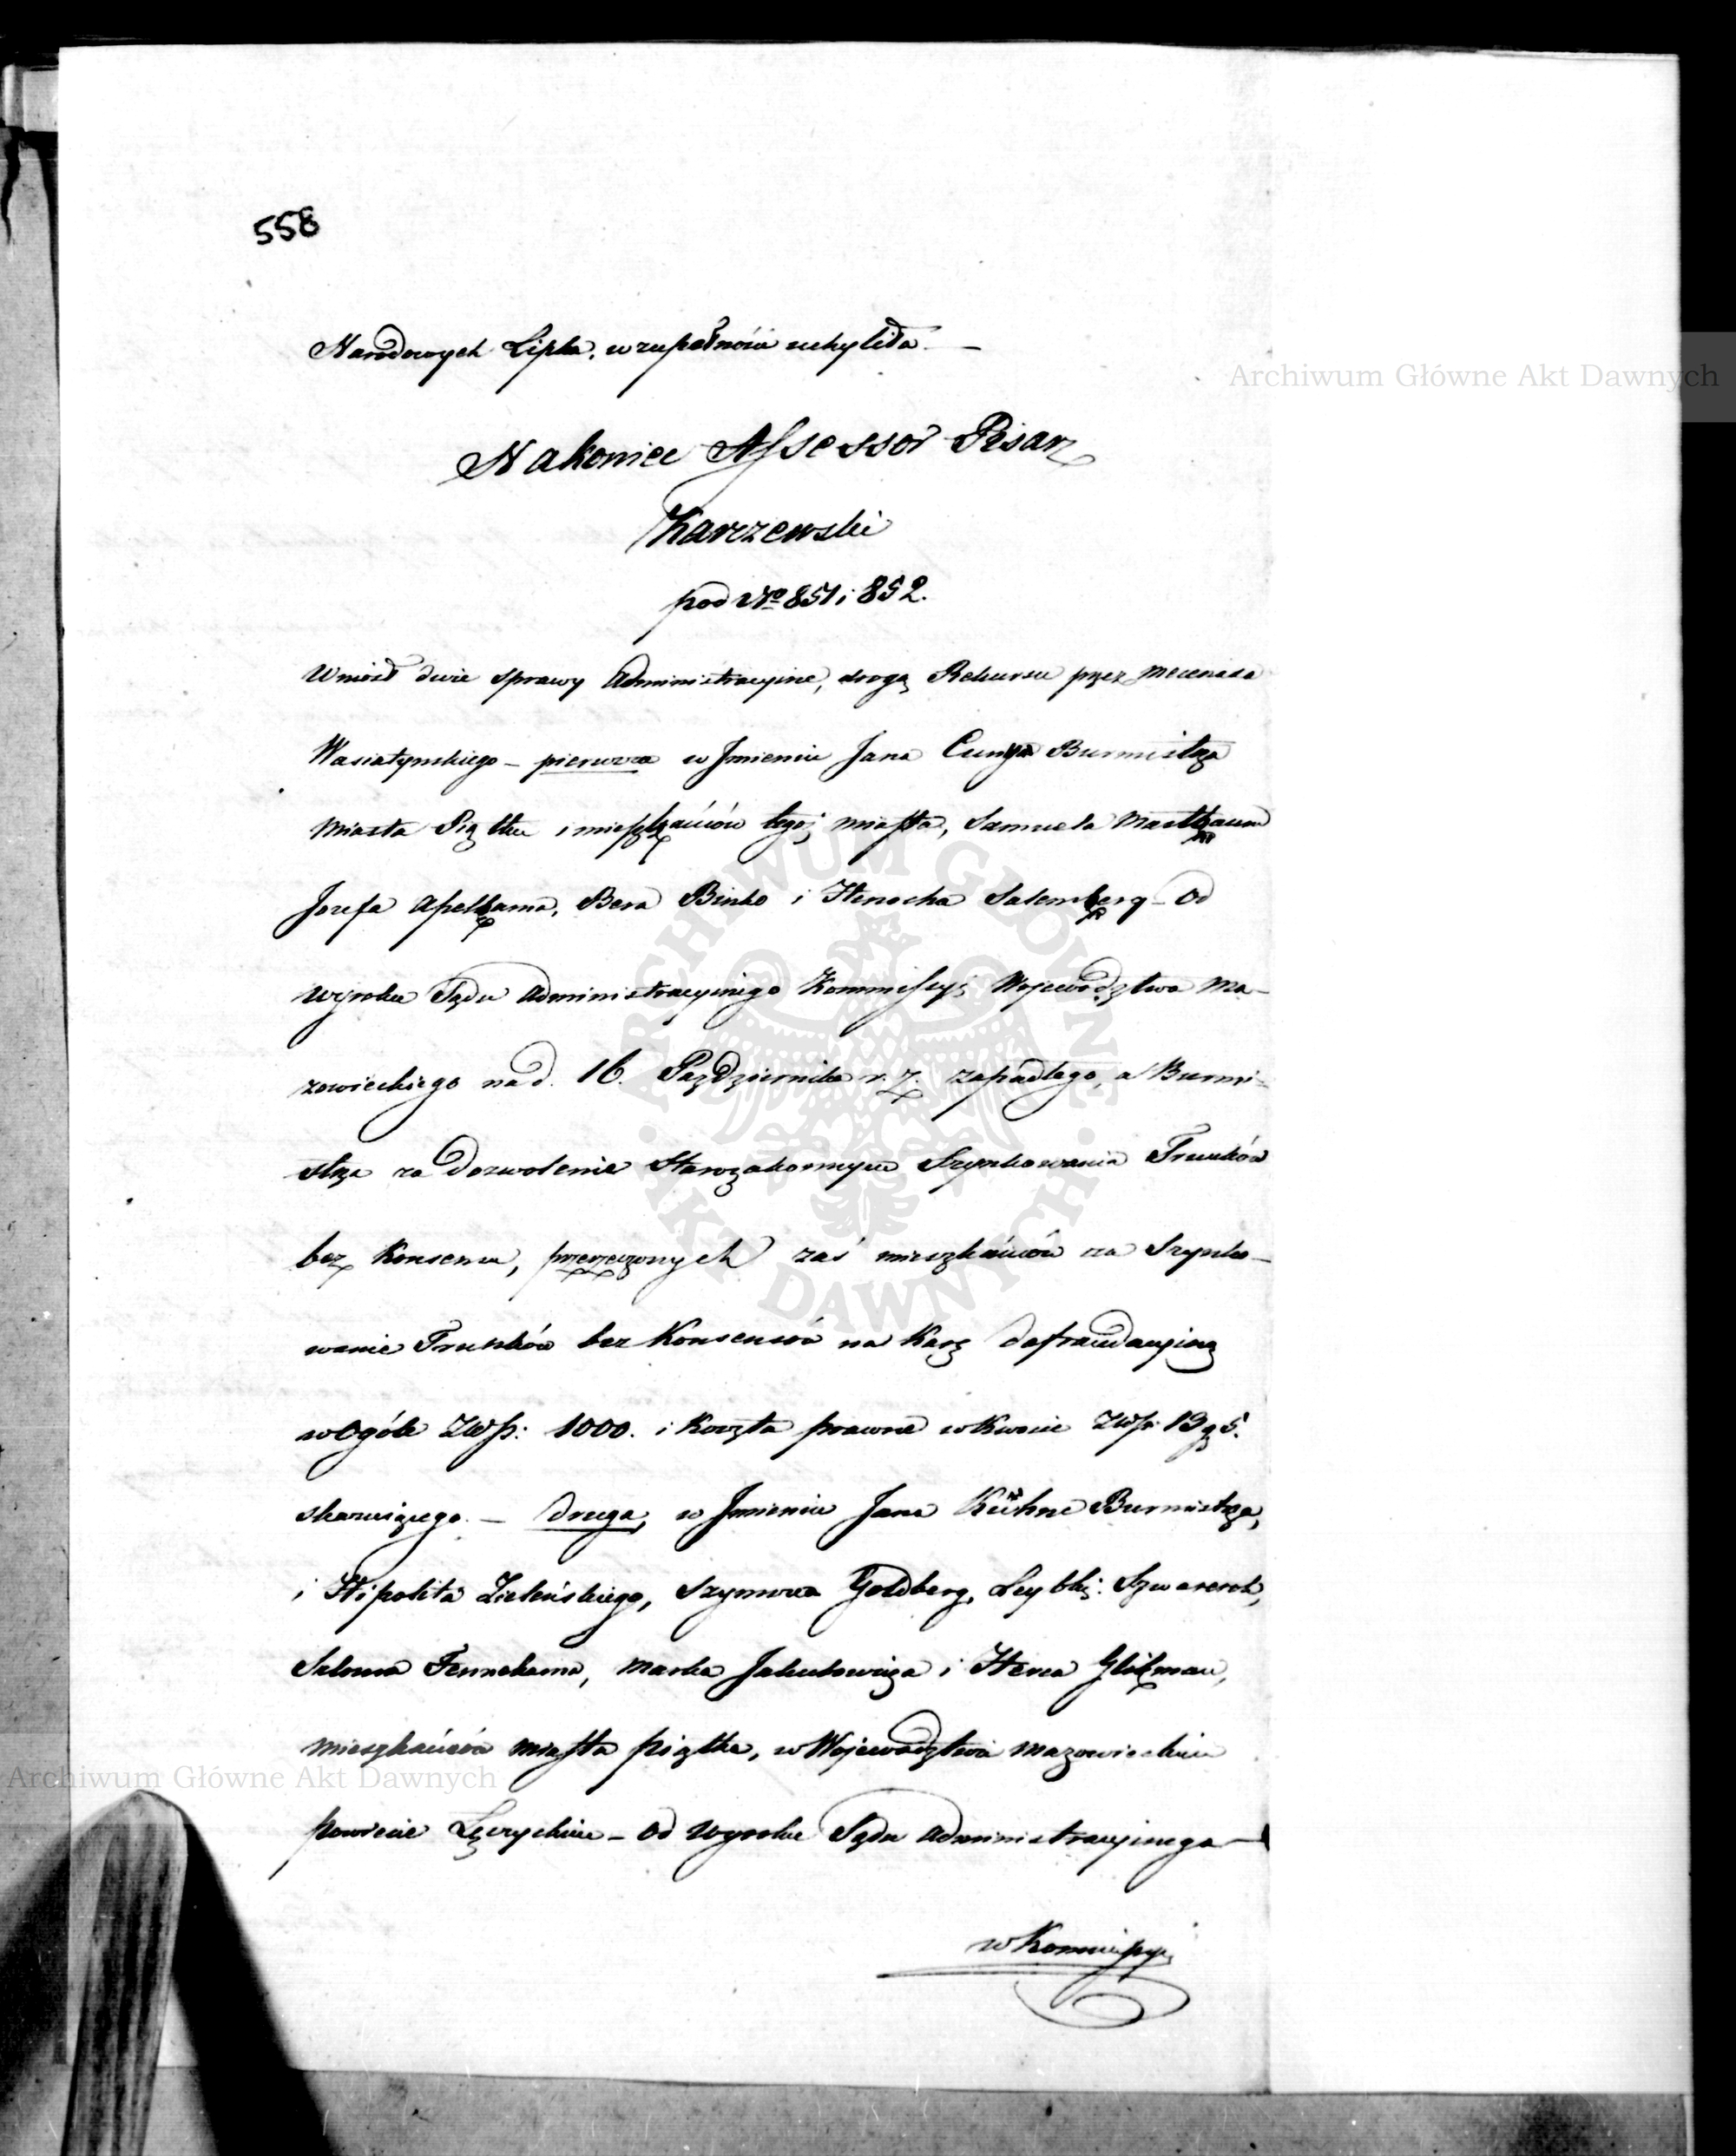 558
Narodowych Lipka, w zupełności uchyliła. —
Nakoniec Assessor Pisarz
Karczewski
pod Nro 851 i 852.
Wniósł dwie sprawy Administracyine, drogą Rekursu przez Mecenasa
Wasiatynskiego – pierwsza w Jmieniu Jana Burmistrza
Miasta Piątku i mieszkańców tegoż miasta, Samuela
Jozefa Apelbama, Bera Binko i Henocha Salemberg – od
Wyroku Sądu Administracyinego Kommissyi Województwa Ma-
zowieckiego na d. 16. Października r. z. zapadłego, a Burmi-
strza za dozwolenie Starozakonnym Szynkowania Trunków
bez Konsensu, przerzeczonych zaś mieszkańców za Szynko-
wanie Trunków bez Konsensów na Karę defraudacyiną
w Ogóle Złłp: 1000. i Koszta prawne w Kwocie Złłp. 13 g 5.
skazuiącego. – Druga, w Jmieniu Jana Kühne Burmistrza,
i Hipolita Zielińskiego, Szymona Goldberg, Leybki
Salomo, Marka Jakubowicza i Herca Glikman,
mieszkańców miasta piątku, w Województwie Mazowieckim
powiecie Łęczyckim – od Wyroku Sądu Administracyinego –
w Kommissyi
Archiwum Główne Akt Dawnych
ARCHIWUM GŁÓWNE AKT DAWNYCH
Archiwum Główne Akt Dawnych